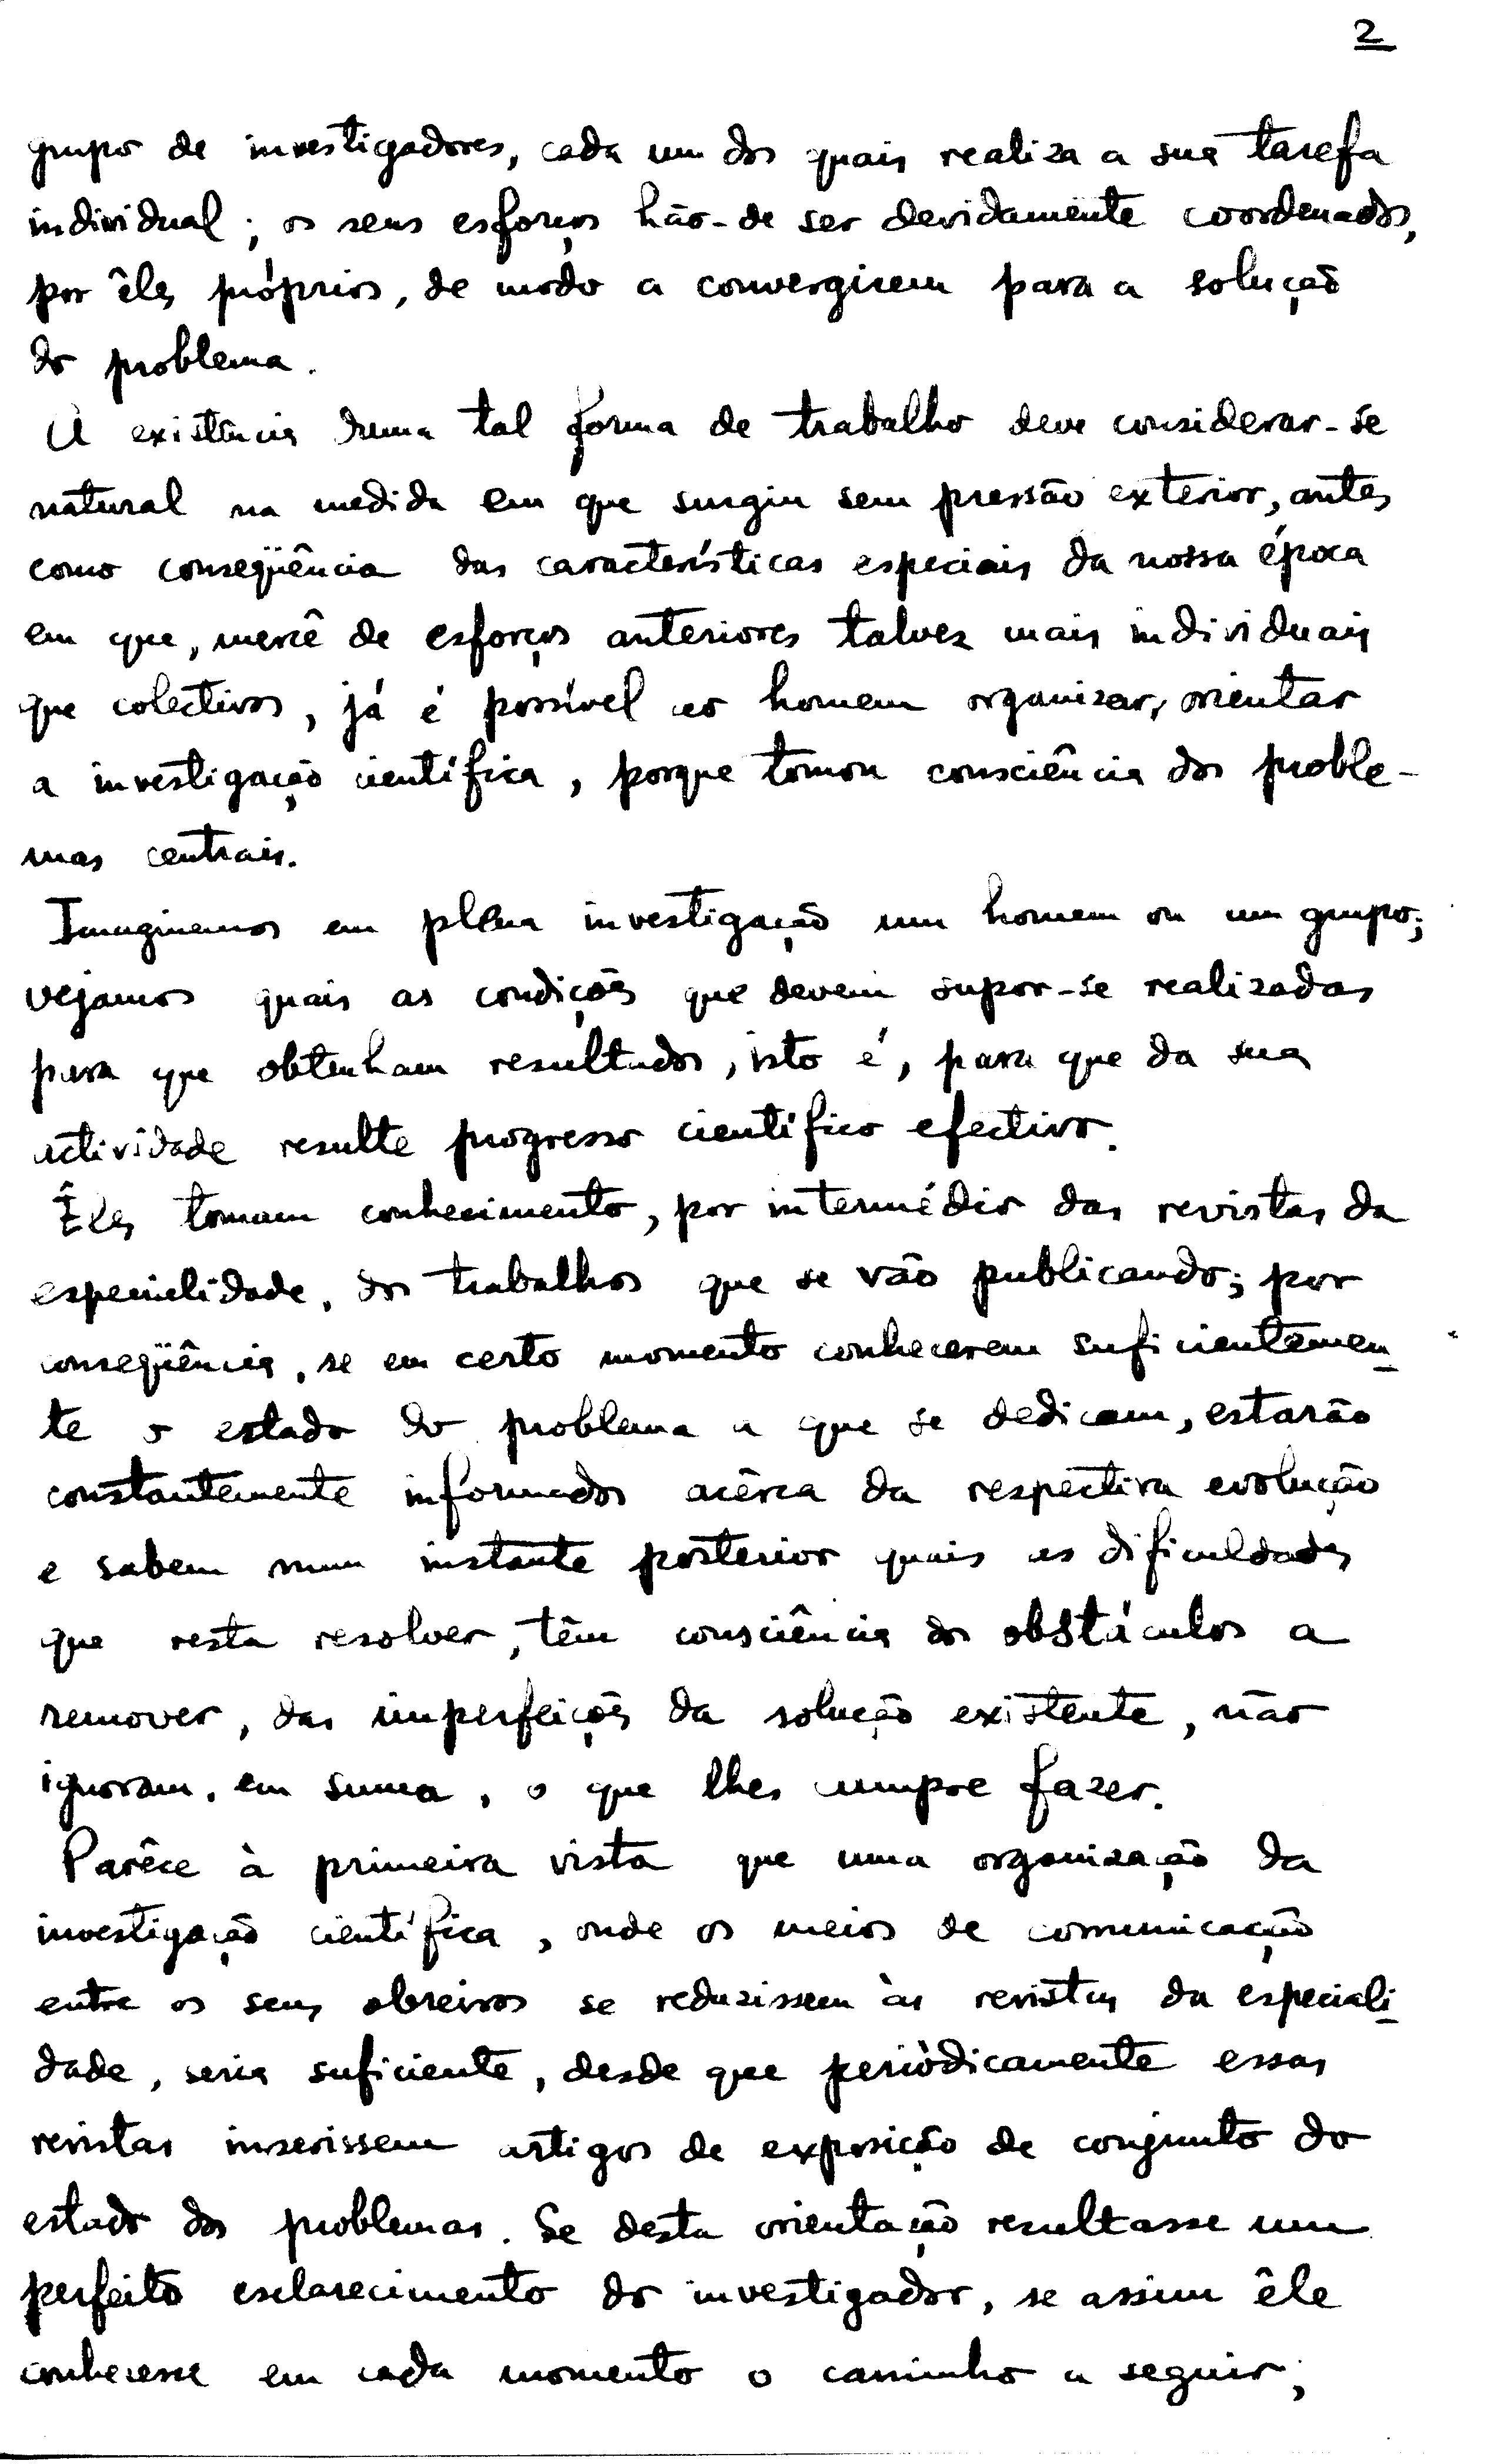 2
grupo de investigadores, cada um dos quais realiza a sua tarefa
individual; os seus esforços hão-de ser devidamente coordenados,
por êles próprios, de modo a convergirem para a solução
do problema.
A existência duma tal forma de trabalho deve considerar-se
natural na medida em que surgiu sem pressão exterior, antes
como conseqüência das características especiais da nossa época
em que, mercê de esforços anteriores talvez mais individuais
que colectivos, já é possível ao homem organizar, orientar
a investigação científica, porque tomou consciência dos proble-
mas centrais.
Imaginemos em plena investigação um homem ou um grupo;
vejamos quais as condições que devem supor-se realizadas
para que obtenham resultados, isto é, para que da sua
actividade resulte progresso científico efectivo.
Êles tomam conhecimento, por intermédio das revistas da
especialidade, dos trabalhos que se vão publicando; por
conseqüência, se em certo momento conhecerem suficientemen-
te o estado do problema a que se dedicam, estarão
constantemente informados acêrca da respectiva evolução
e sabem num instante posterior quais as dificuldades
que resta resolver, têm consciência dos obstáculos a
remover, das imperfeições da solução existente, não
ignoram, em suma, o que lhes cumpre fazer.
Parêce à primeira vista que uma organização da
investigação científica, onde os meios de comunicação
entre os seus obreiros se reduzissem às revistas da especiali-
dade, seria suficiente, desde que periòdicamente essas
revistas inserissem artigos de exposição de conjunto do
estado dos problemas. Se desta orientação resultasse um
perfeito esclarecimento do investigador, se assim êle
conhecesse em cada momento o caminho a seguir;